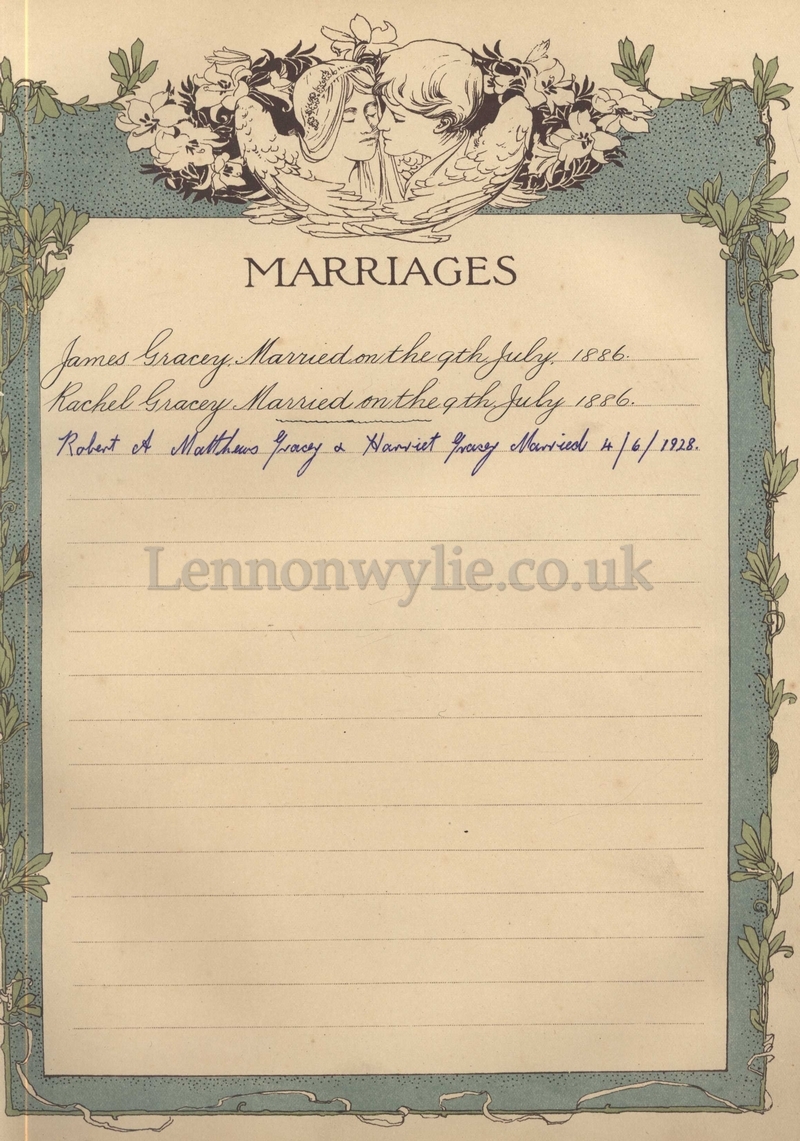 MARRIAGES
James Gracey, Married on the 9th July, 1886.
Rachel Gracey Married on the 9th July 1886.
Robert A Matthews Gracey & Harriet Gracey Married 4/6/1928.
Lennonwylie.co.uk